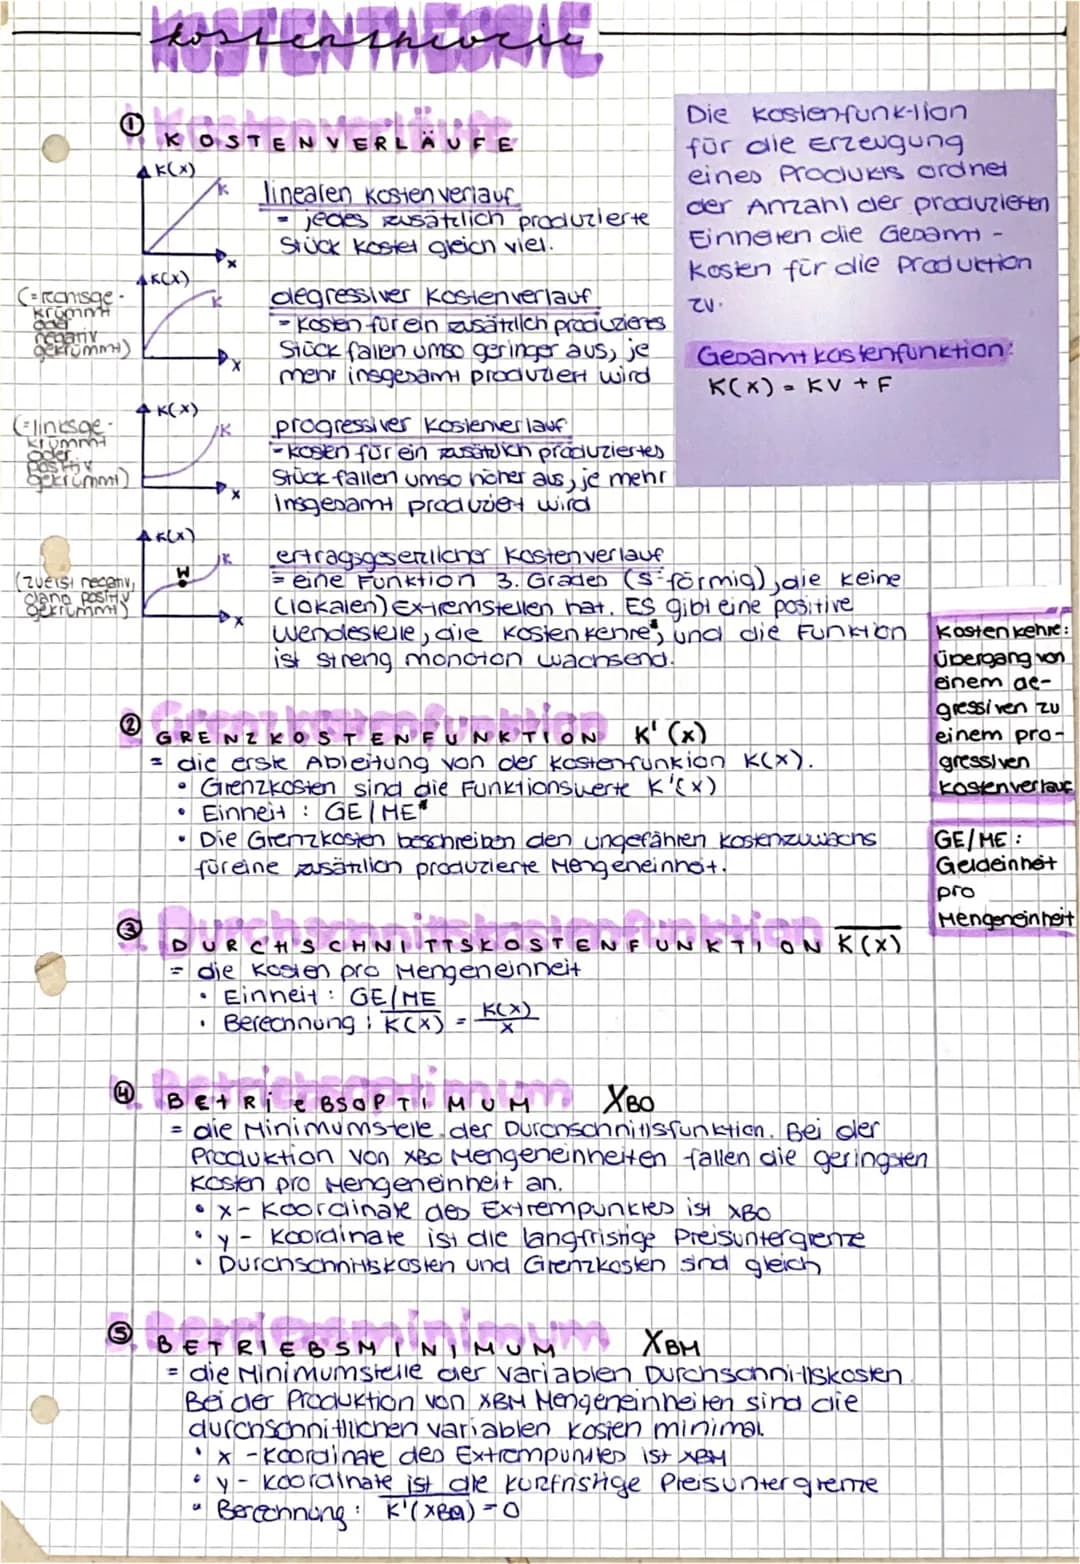 kostentheorie
① KOSTENVERLÄUFE
K(x)
K
x
linearen Kostenverlauf
= jedes zusätzlich produzierte
Stück kostet gleich viel.
(= rechtsge-
krümmt
oder
negativ
gekrümmt)
K(x)
K
x
degressiver Kostenverlauf
= Kosten für ein zusätzlich produziertes
Stück fallen umso geringer aus, je
mehr insgesamt produziert wird
(= linksge-
krümmt
oder
positiv
gekrümmt)
K(x)
K
x
progressiver Kostenverlauf
= Kosten für ein zusätzlich produziertes
Stück fallen umso höher aus, je mehr
insgesamt produziert wird
(zuerst negativ,
dann positiv
gekrümmt)
K(x)
W
K
x
ertragsgesetzlicher Kostenverlauf
= eine Funktion 3. Grades (s-förmig), die keine
(lokalen) Extremstellen hat. Es gibt eine positive
Wendestelle, die Kostenkehre*, und die Funktion
ist streng monoton wachsend.
Die Kostenfunktion
für die Erzeugung
eines Produkts ordnet
der Anzahl der produzierten
Einheiten die Gesamt-
kosten für die Produktion
zu.
Gesamtkostenfunktion:
K(x) = KV + F
Kostenkehre:
Übergang von
einem de-
gressiven zu
einem pro-
gressiven
Kostenverlauf
② GRENZKOSTENFUNKTION K'(x)
= die erste Ableitung von der Kostenfunktion K(x).
• Grenzkosten sind die Funktionswerte K'(x)
• Einheit: GE/ME*
• Die Grenzkosten beschreiben den ungefähren Kostenzuwachs
für eine zusätzlich produzierte Mengeneinheit.
GE/ME:
Geldeinheit
pro
Mengeneinheit
③ DURCHSCHNITTSKOSTENFUNKTION K̅(̅x̅)̅
= die Kosten pro Mengeneinheit
• Einheit: GE/ME
• Berechnung: K̅(̅x̅)̅ = K(x)/x
④ BETRIEBSOPTIMUM XBO
= die Minimumstelle der Durchschnittsfunktion. Bei der
Produktion von XBO Mengeneinheiten fallen die geringsten
Kosten pro Mengeneinheit an.
• x-Koordinate des Extrempunktes ist XBO
• y-Koordinate ist die langfristige Preisuntergrenze
• Durchschnittskosten und Grenzkosten sind gleich
⑤ BETRIEBSMINIMUM XBM
= die Minimumstelle der variablen Durchschnittskosten.
Bei der Produktion von XBM Mengeneinheiten sind die
durchschnittlichen variablen Kosten minimal.
• x-Koordinate des Extrempunktes ist XBM
• y-Koordinate ist die kurzfristige Preisuntergrenze
• Berechnung: K̅'(XBO) = 0